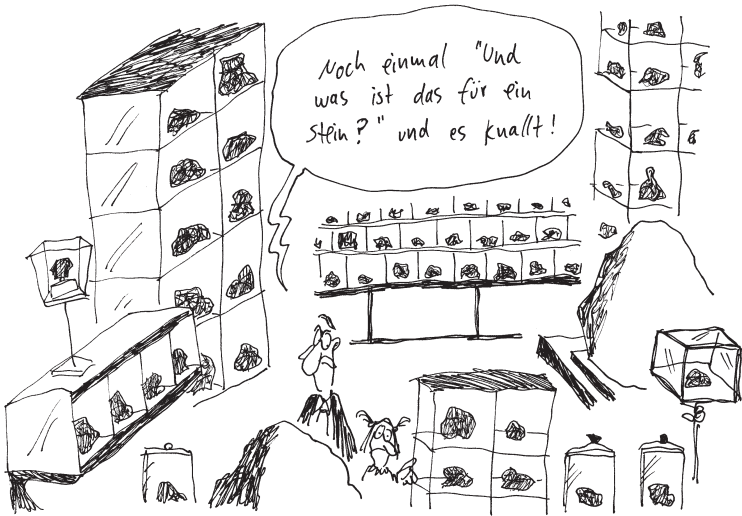 Noch einmal "Und
was ist das für ein
Stein?" und es knallt!